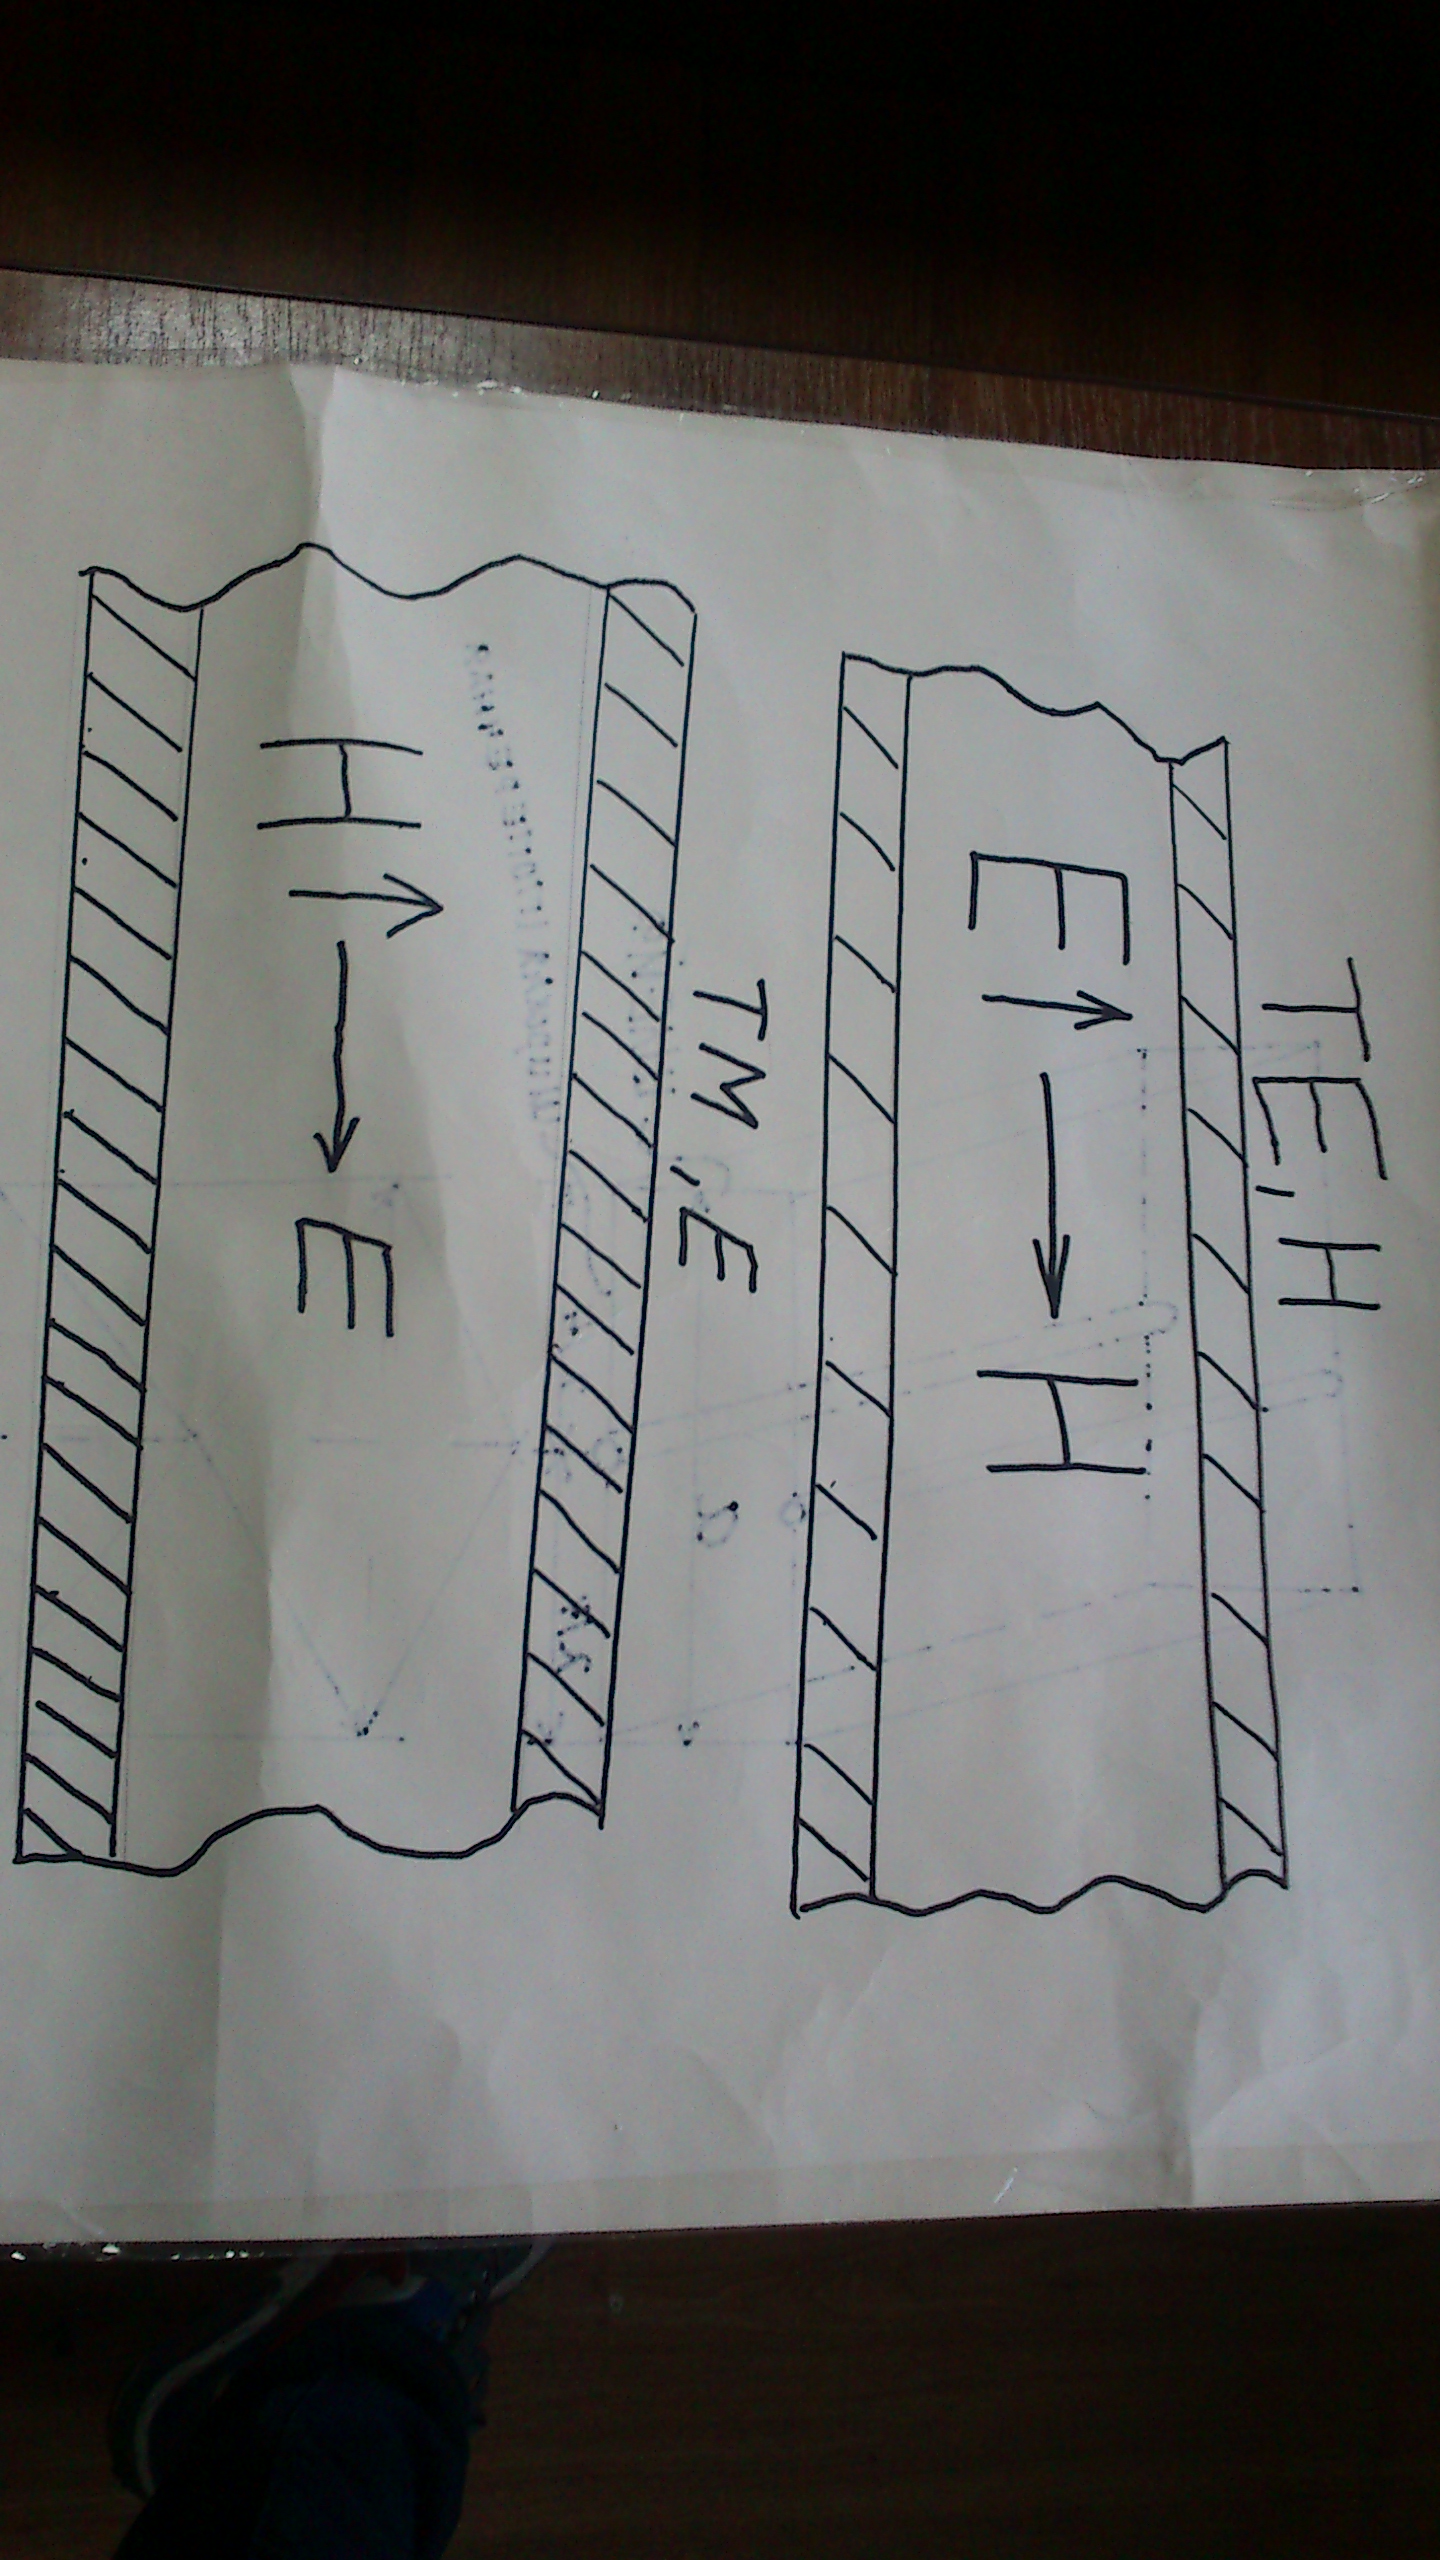 TE, H
E H
TM, E
H E